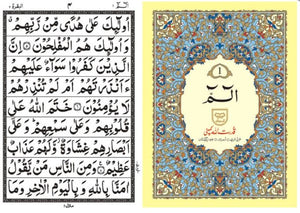 ١
الٓمّٓ
قدرت اللہ کمپنی
البقرة
الٓمّٓ
اُولٰٓئِكَ عَلٰى هُدًى مِّنْ رَّبِّهِمْ
وَاُولٰٓئِكَ هُمُ الْمُفْلِحُوْنَ ۝ اِنَّ
الَّذِيْنَ كَفَرُوْا سَوَآءٌ عَلَيْهِمْ
ءَاَنْذَرْتَهُمْ اَمْ لَمْ تُنْذِرْهُمْ
لَا يُؤْمِنُوْنَ ۝ خَتَمَ اللّٰهُ عَلٰى
قُلُوْبِهِمْ وَعَلٰى سَمْعِهِمْ وَعَلٰٓى
اَبْصَارِهِمْ غِشَاوَةٌ وَّلَهُمْ عَذَابٌ
عَظِيْمٌ ۝ وَمِنَ النَّاسِ مَنْ يَّقُوْلُ
اٰمَنَّا بِاللّٰهِ وَبِالْيَوْمِ الْاٰخِرِ وَمَا